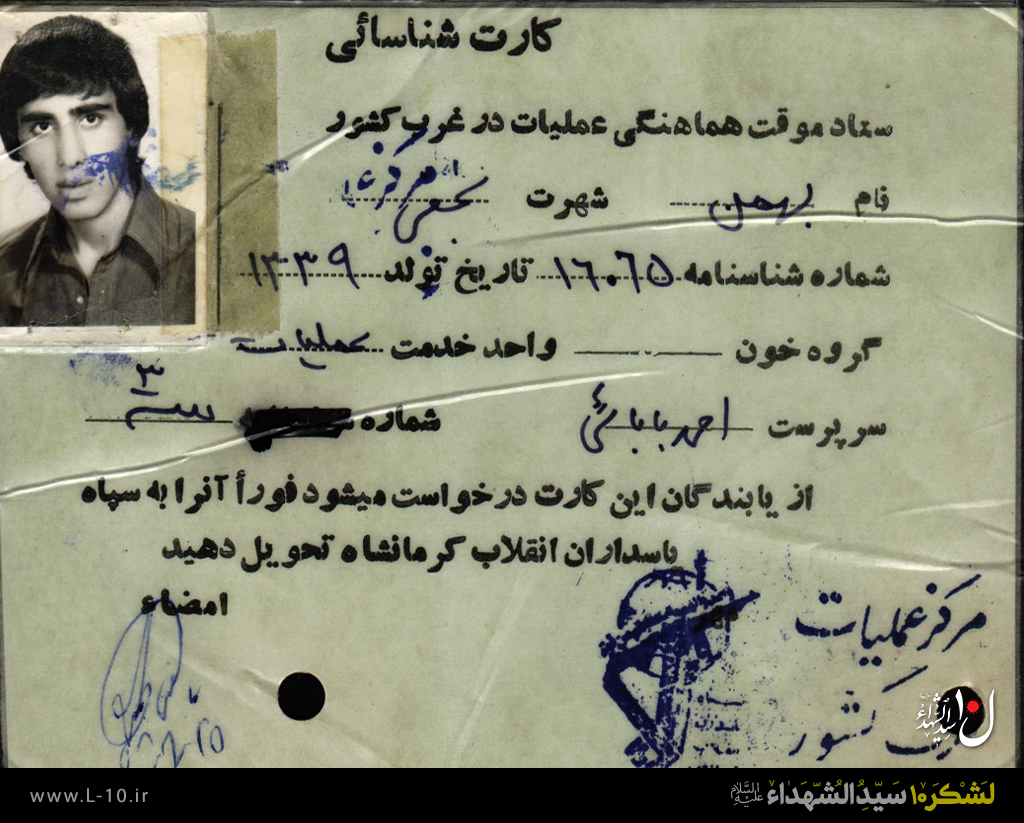 کارت شناسائی
ستاد موقت هماهنگی عملیات در غرب کشور
نام بهمن شهرت نجفی
شماره شناسنامه ۱۶۰۶۵ تاریخ تولد ۱۳۳۹
گروه خون واحد خدمت عملیات
سرپرست احمد بابائی شماره
از یابندگان این کارت درخواست میشود فوراً آنرا به سپاه
پاسداران انقلاب کرمانشاه تحویل دهید
امضاء
مهر
مرکز عملیات
کشور
سیدالشهداء
www.L-10.ir
لَشْکَرِه۱۰ سَیِّدُالشُّهَداء علیه السلام